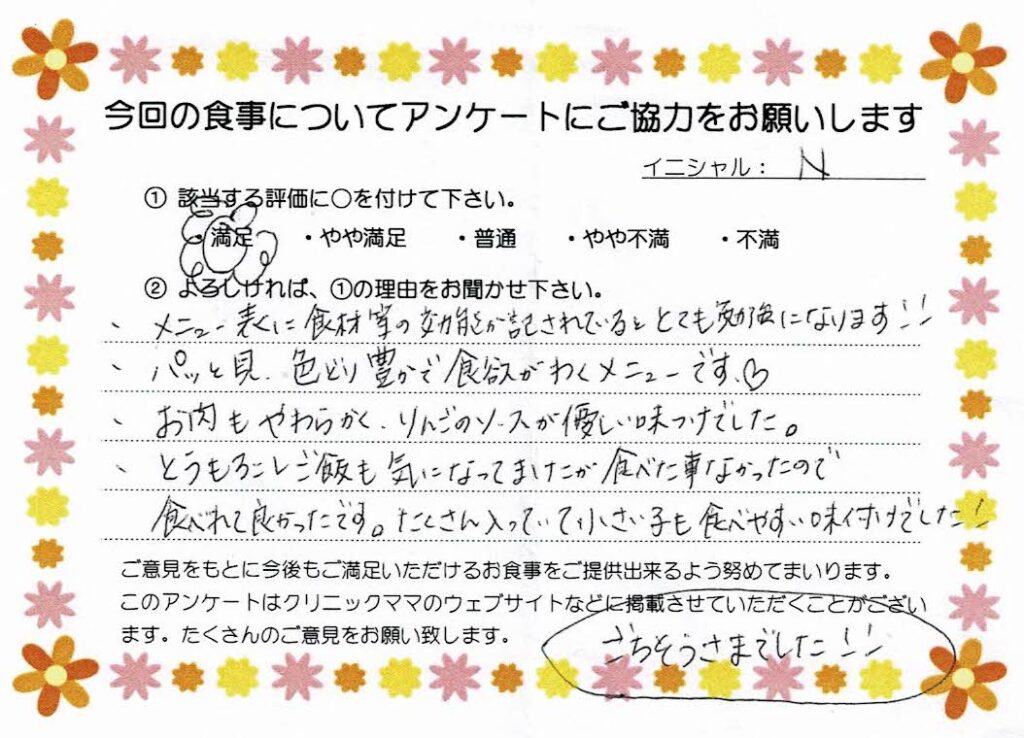 今回の食事についてアンケートにご協力をお願いします
イニシャル： N
① 該当する評価に○を付けて下さい。
・満足 ・やや満足 ・普通 ・やや不満 ・不満
② よろしければ、①の理由をお聞かせ下さい。
、メニュー表に食材等の効能が記されているととても勉強になります!!
、パッと見、色どり豊かで食欲がわくメニューです♡
、お肉もやわらかく、りんごのソースが優しい味つけでした。
、とうもろこしご飯も気になってましたが食べた事なかったので
食べれて良かったです。たくさん入っていて小さい子も食べやすい味付けでした!!
ご意見をもとに今後もご満足いただけるお食事をご提供出来るよう努めてまいります。
このアンケートはクリニックママのウェブサイトなどに掲載させていただくことがござい
ます。たくさんのご意見をお願い致します。
ごちそうさまでした!!